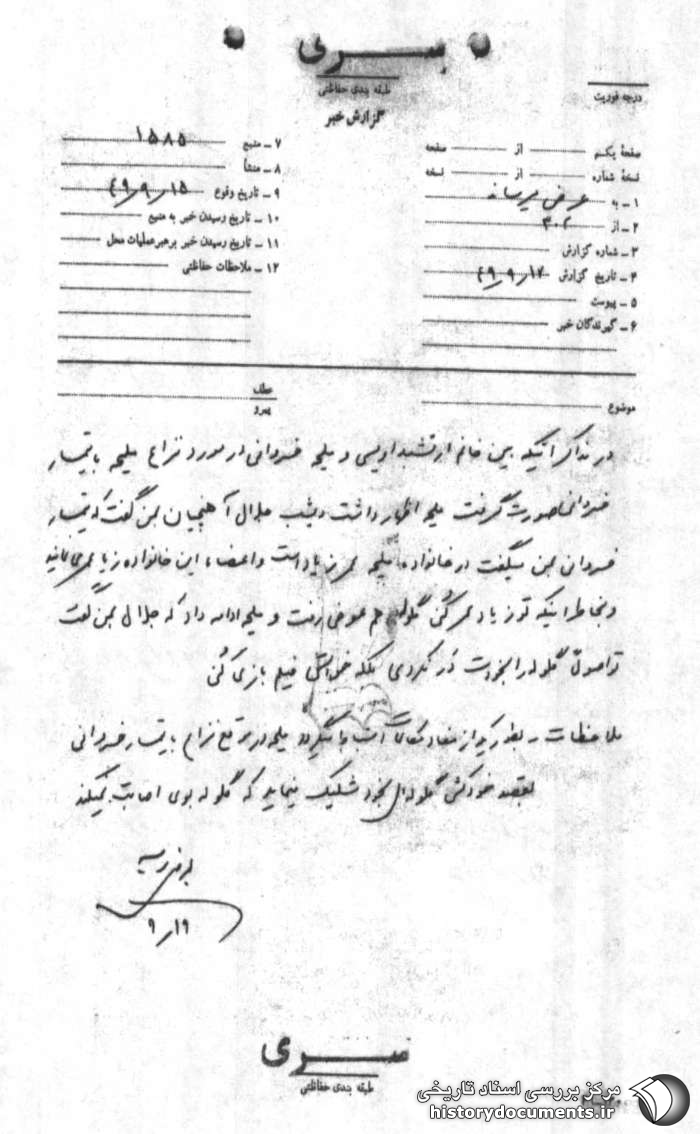 سری
طبقه بندی حفاظتی
گزارش خبر
درجه فوریت
صفحهٔ یکم از صفحه
نسخهٔ شماره از نسخه
۱ ـ به عرض میرساند
۲ ـ از ۳۰۲
۳ ـ شماره گزارش
۴ ـ تاریخ گزارش ۴۹٫۹٫۱۷
۵ ـ پیوست
۶ ـ گیرندگان خبر
۷ ـ منبع ۱۵۸۵
۸ ـ منشأ
۹ ـ تاریخ وقوع ۴۹٫۹٫۱۵
۱۰ ـ تاریخ رسیدن خبر به منبع
۱۱ ـ تاریخ رسیدن خبر برهبر عملیات محل
۱۲ ـ ملاحظات حفاظتی
موضوع
عطف
پیرو
در مذاکراتیکه بین خانم ارتشبد اویسی و ملیحه خسروانی در مورد نزاع ملیحه با تیمسار
خسروانی صورت گرفت ملیحه اظهار داشت دیشب جلال آهنچیان بمن گفت که تیمسار
خسروانی بمن میگفت در خانواده ملیحه عمر زیاد است و اعضاء این خانواده زیاد عمر می نمایند
و بخاطر اینکه تو زیاد عمر کنی گلوله هم عوضی رفت و ملیحه ادامه داد که جلال بمن گفت
تو اصولاً گلوله را بخودت در نکردی بلکه خواستی فیلم بازی کنی
ملاحظات ـ بطوریکه از مفاد مکالمات استنباط میگردد ملیحه در موقع نزاع با تیمسار خسروانی
بقصد خودکشی گلوله ای بخود شلیک مینماید که گلوله بوی اصابت نمیکند
بعرض رسید
۹٫۱۹
سری
طبقه بندی حفاظتی
مرکز بررسی اسناد تاریخی
historydocuments.ir